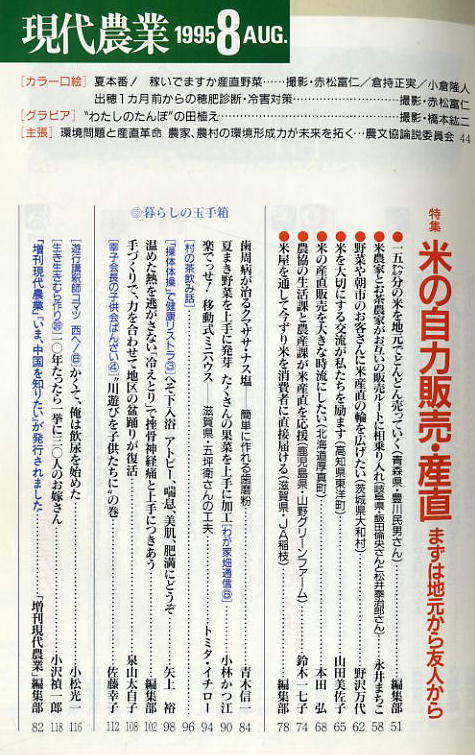 現代農業 1995 8 AUG.
[カラー口絵] 夏本番! 稼いでますか産直野菜……撮影・赤松富仁／倉持正実／小倉隆人
出穂1カ月前からの穂肥診断・冷害対策……撮影・赤松富仁
[グラビア] “わたしのたんぼ”の田植え……撮影・橋本紘二
[主張] 環境問題と産直革命 農家、農村の環境形成力が未来を拓く…農文協論説委員会 44
特集 米の自力販売・産直 まずは地元から友人から
●一五㌶分の米を地元でどんどん売っていく(青森県・豊川民男さん)……編集部 51
●米農家とお茶農家がお互いの販売ルートに相乗り入れ(岐阜県・飯田倫央さんと松井泰治郎さん)……永井まちこ 58
●野菜や朝市のお客さんに米産直の輪を広げたい(茨城県大和村)……野沢万代 62
●米を大切にする交流が私たちを励ます(高知県東洋町)……山田美佐子 65
●米の産直販売を大きな時流にしたい(北海道厚真町)……本田 弘 68
●農協の生活課と農産課が米産直を応援(鹿児島県・山野グリーンファーム)……鈴木一七子 74
●米屋を通して今ずり米を消費者に直接届ける(滋賀県・JA稲枝)……編集部 78
◎暮らしの玉手箱
歯周病が治るクマザサ・ナス塩――簡単に作れる歯磨粉……青木信一 84
夏まき野菜を上手に発芽 たくさんの果菜を上手に加工[わが家畑通信⑧]……小林かつ江 90
楽でっせ! 移動式ミニハウス 滋賀県・五坪衛さんの工夫……トミタ・イチロー 94
[村の茶飲み話]……96
[「操体体操」で健康リストラ③]へそ下入浴 アトピー、喘息、美肌、肥満にどうぞ……矢上 裕 98
温めた熱を逃がさない「冷えとり」で挫骨神経痛と上手につきあう……編集部 102
手づくりで、力を合わせて地区の盆踊りが復活……泉山太自子 108
[幸子会長の子供会ばんざい④]“川遊びを子供たちに”の巻……佐藤幸子 112
[遊行講釈師コマツ 西へ/⑧]かくて、俺は飲尿を始めた……小松光一 116
[生き生きむら作り⑳]二〇年たったら一挙に三〇人のお嫁さん……小沢禎一郎 118
「増刊現代農業」「いま、中国を知りたい」が発行されました……「増刊現代農業」編集部 82